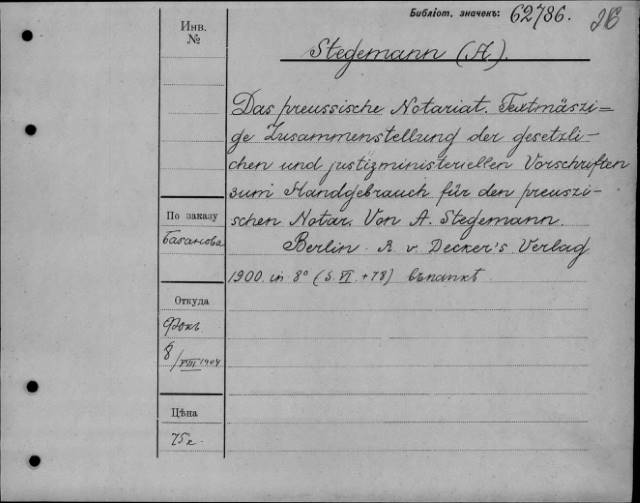 Библіот. значекъ: 62786.
Инв.
№
Stegemann (A.)
Das preussische Notariat. Textmäszi=
ge Zusammenstellung der gesetzli-
chen und justizministeriellen Vorschriften
zum Handgebrauch für den preuszi-
schen Notar. Von A. Stegemann.
Berlin R. v. Decker's Verlag
1900. in 8° (S. VI. + 78)
По заказу
Базанова
Откуда
Фокъ
8/VIII 1904
Цѣна
75к.